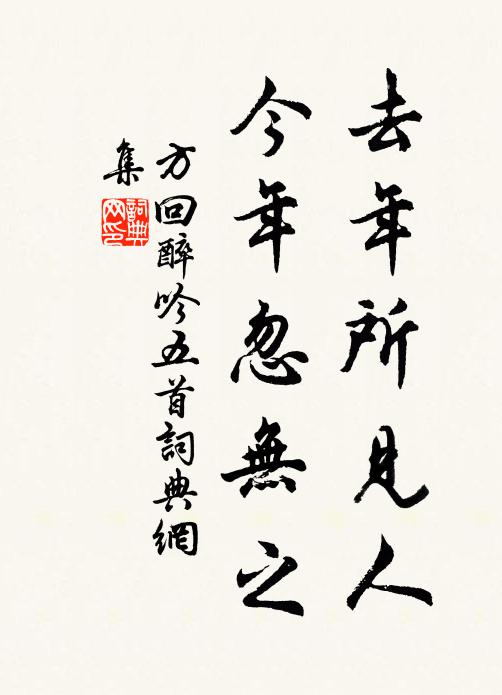 去年所見人
今年忽無之
方回醉吟五首詞典網
集
詞典
网印